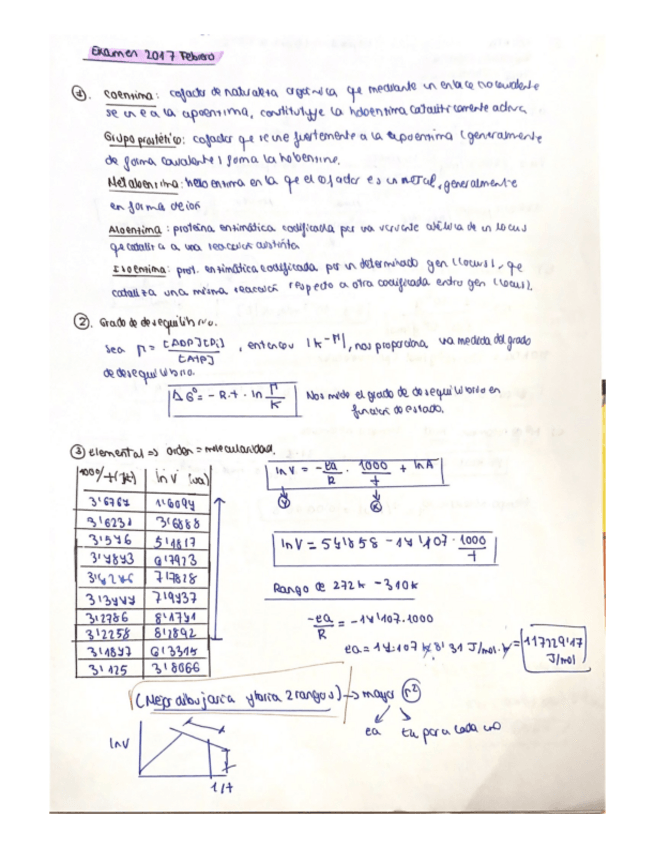 Examen 2017 Febrero
1. Coenzima: cofactor de naturaleza orgánica, que mediante un enlace no covalente
se une a la apoenzima, constituye la holoenzima cataliticamente activa.
Grupo prostético: cofactor que se une fuertemente a la apoenzima (generalmente
de forma covalente) forma la
Metaloenzima: holoenzima en la que el cofactor es un metal, generalmente
en forma de ion
Aloenzima: proteína enzimática codificada por una variante alélica de un locus
que cataliza a una reacción distinta
Isoenzima: prot. enzimática codificada por un determinado gen (locus), que
cataliza una misma reacción respecto a otra codificada en otro gen (locus).
2. Grado de desequilibrio.
Sea Γ = [ADP][Pi] / [ATP], entonces |K-Γ|, nos proporciona una medida del grado
de desequilibrio.
ΔG° = -R.t · ln Γ/K Nos mide el grado de desequilibrio en
función de estado.
3 elemental => orden = molecularidad.
1000/t(K) ln V (ua)
3'6764 1'6094
3'6231 3'6888
3'576 5'4817
3'4843 6'7923
3'4246 7'7828
3'3444 7'9437
3'2786 8'1741
3'2258 8'2892
3'1847 6'3315
3'125 3'8066
ln V = -ea/R · 1000/t + ln A
Y X
ln V = 54'858 - 14'107 · 1000/t
Rango de 272k - 310k
-ea/R = -14'107.1000
ea = 14.107 k 8'31 J/mol·k = 117229'17 J/mol
(Mejor dibujarla y haria 2 rangos) → mayor r²
ea para cada uno
ln V
1/t